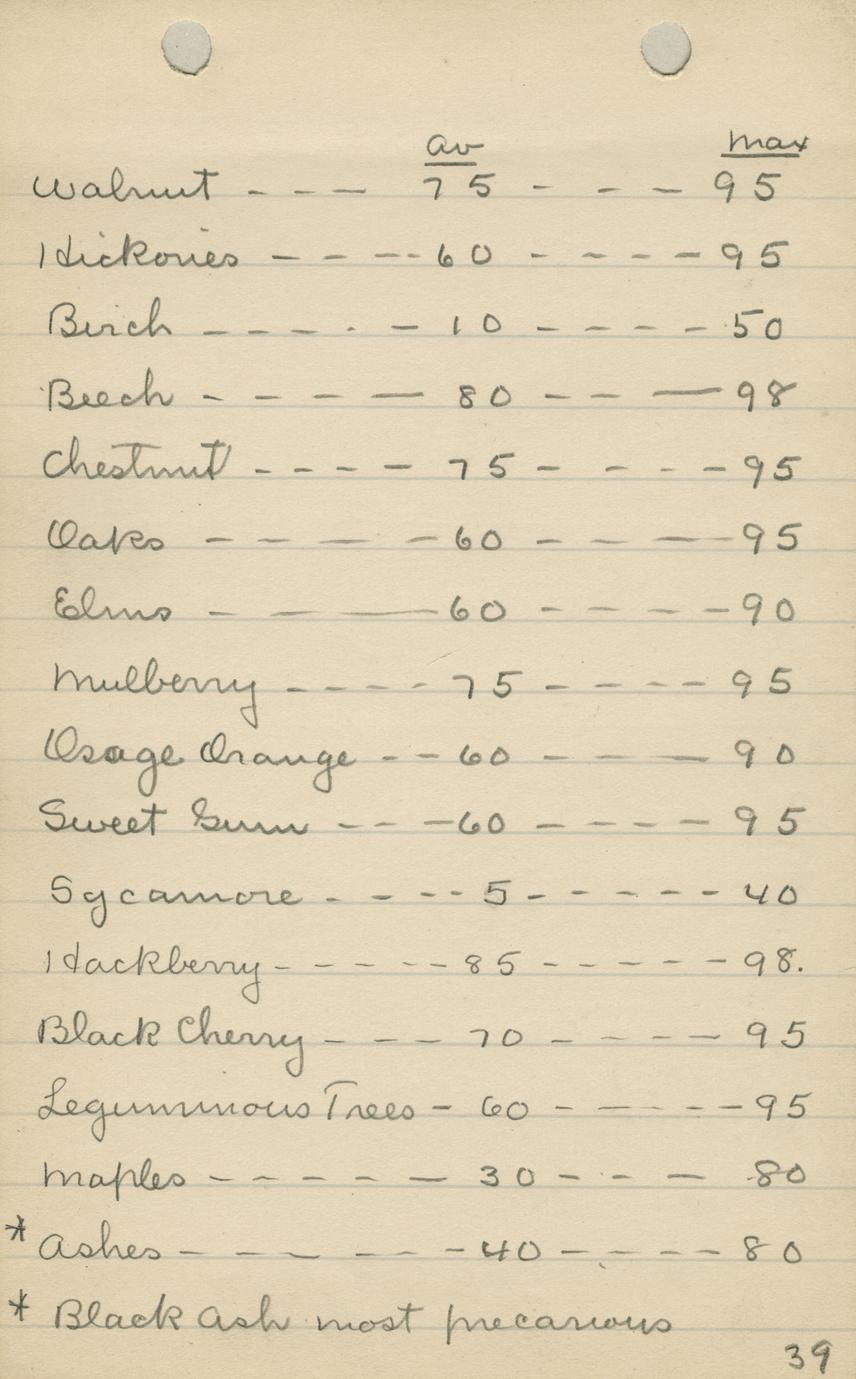 Av max
Walnut - - - 75 - - - 95
Hickories - - - - 60 - - - - 95
Birch - - - - - 10 - - - - 50
Beech - - - - 80 - - - 98
Chestnut - - - - 75 - - - - 95
Oaks - - - - 60 - - - 95
Elms - - - 60 - - - - 90
Mulberry - - - - 75 - - - - 95
Osage Orange - - 60 - - - 90
Sweet Gum - - - 60 - - - - 95
Sycamore - - - - 5 - - - - - 40
Hackberry - - - - - 85 - - - - - 98.
Black Cherry - - - 70 - - - - 95
Leguminous Trees - 60 - - - - - 95
Maples - - - - - 30 - - - 80
* Ashes - - - - - - 40 - - - - 80
* Black Ash most precarious
39